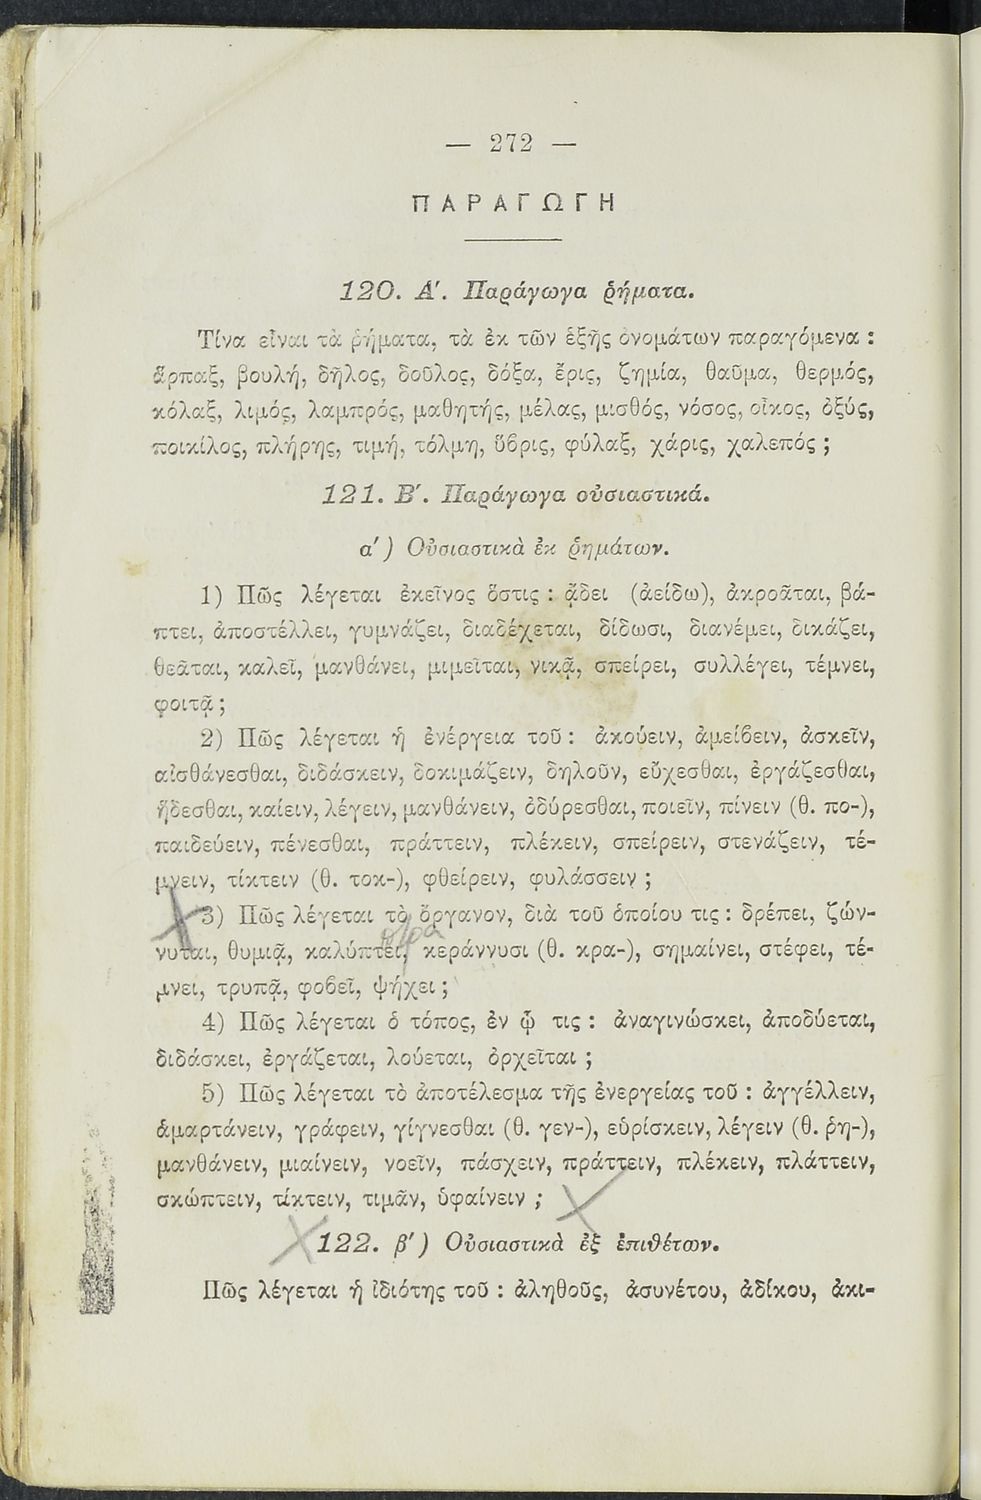 — 272 —
ΠΑΡΑΓΩΓΗ
120. Α΄. Παράγωγα ῥήματα.
Τίνα εἶναι τὰ ῥήματα, τὰ ἐκ τῶν ἑξῆς ὀνομάτων παραγόμενα :
ἅρπαξ, βουλή, δῆλος, δοῦλος, δόξα, ἔρις, ζημία, θαῦμα, θερμός,
κόλαξ, λιμός, λαμπρός, μαθητής, μέλας, μισθός, νόσος, οἶκος, ὀξύς,
ποικίλος, πλήρης, τιμή, τόλμη, ὕβρις, φύλαξ, χάρις, χαλεπός ;
121. Β΄. Παράγωγα οὐσιαστικά.
α΄) Οὐσιαστικὰ ἐκ ῥημάτων.
1) Πῶς λέγεται ἐκεῖνος ὅστις : ᾄδει (ἀείδω), ἀκροᾶται, βά-
πτει, ἀποστέλλει, γυμνάζει, διαδέχεται, δίδωσι, διανέμει, δικάζει,
θεᾶται, καλεῖ, μανθάνει, μιμεῖται, νικᾷ, σπείρει, συλλέγει, τέμνει,
φοιτᾷ ;
2) Πῶς λέγεται ἡ ἐνέργεια τοῦ : ἀκούειν, ἀμείβειν, ἀσκεῖν,
αἰσθάνεσθαι, διδάσκειν, δοκιμάζειν, δηλοῦν, εὔχεσθαι, ἐργάζεσθαι,
ἥδεσθαι, καίειν, λέγειν, μανθάνειν, ὀδύρεσθαι, ποιεῖν, πίνειν (θ. πο-),
παιδεύειν, πένεσθαι, πράττειν, πλέκειν, σπείρειν, στενάζειν, τέ-
μνειν, τίκτειν (θ. τοκ-), φθείρειν, φυλάσσειν ;
3) Πῶς λέγεται τὸ ὄργανον, διὰ τοῦ ὁποίου τις : δρέπει, ζών-
νυται, θυμιᾷ, καλύπτει, κεράννυσι (θ. κρα-), σημαίνει, στέφει, τέ-
μνει, τρυπᾷ, φοβεῖ, ψήχει ;
4) Πῶς λέγεται ὁ τόπος, ἐν ᾧ τις : ἀναγινώσκει, ἀποδύεται,
διδάσκει, ἐργάζεται, λούεται, ὀρχεῖται ;
5) Πῶς λέγεται τὸ ἀποτέλεσμα τῆς ἐνεργείας τοῦ : ἀγγέλλειν,
ἁμαρτάνειν, γράφειν, γίγνεσθαι (θ. γεν-), εὑρίσκειν, λέγειν (θ. ῥη-),
μανθάνειν, μιαίνειν, νοεῖν, πάσχειν, πράττειν, πλέκειν, πλάττειν,
σκώπτειν, τίκτειν, τιμᾶν, ὑφαίνειν ;
122. β΄) Οὐσιαστικὰ ἐξ ἐπιθέτων.
Πῶς λέγεται ἡ ἰδιότης τοῦ : ἀληθοῦς, ἀσυνέτου, ἀδίκου, ἀκι-